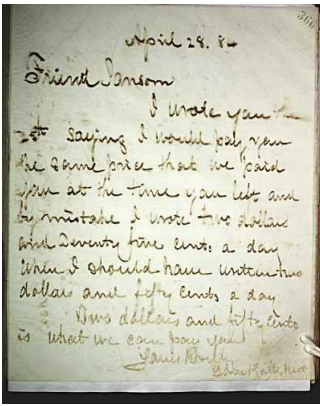 366
April 28. 84
Friend Sansom
I wrote you the
25th saying I would pay you
the same price that we paid
you at the time you left and
by mistake I wrote two dollars
and Seventy five cents a day
when I should have written two
dollars and fifty cents a day.
Two dollars and fifty cents
is what we can pay you
Yours